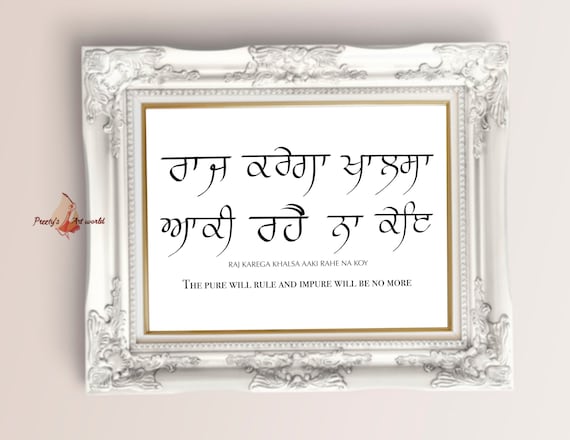 ਰਾਜ ਕਰੇਗਾ ਖਾਲਸਾ
ਆਕੀ ਰਹੈ ਨਾ ਕੋਇ
RAJ KAREGA KHALSA AAKI RAHE NA KOY
THE PURE WILL RULE AND IMPURE WILL BE NO MORE
Preety's Art world